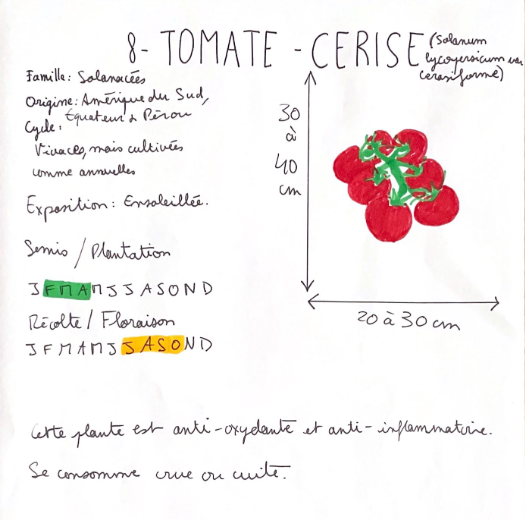 8- TOMATE - CERISE (Solanum
lycopersicum var
cerasiforme)
Famille: Solanacées
Origine: Amérique du Sud,
Équateur & Pérou
Cycle:
Vivaces, mais cultivées
comme annuelles
Exposition: Ensoleillée.
Semis / Plantation
J F M A M J J A S O N D
Récolte / Floraison
J F M A M J J A S O N D
30
à
40
cm
20 à 30 cm
Cette plante est anti-oxydante et anti-inflammatoire.
Se consomme crue ou cuite.